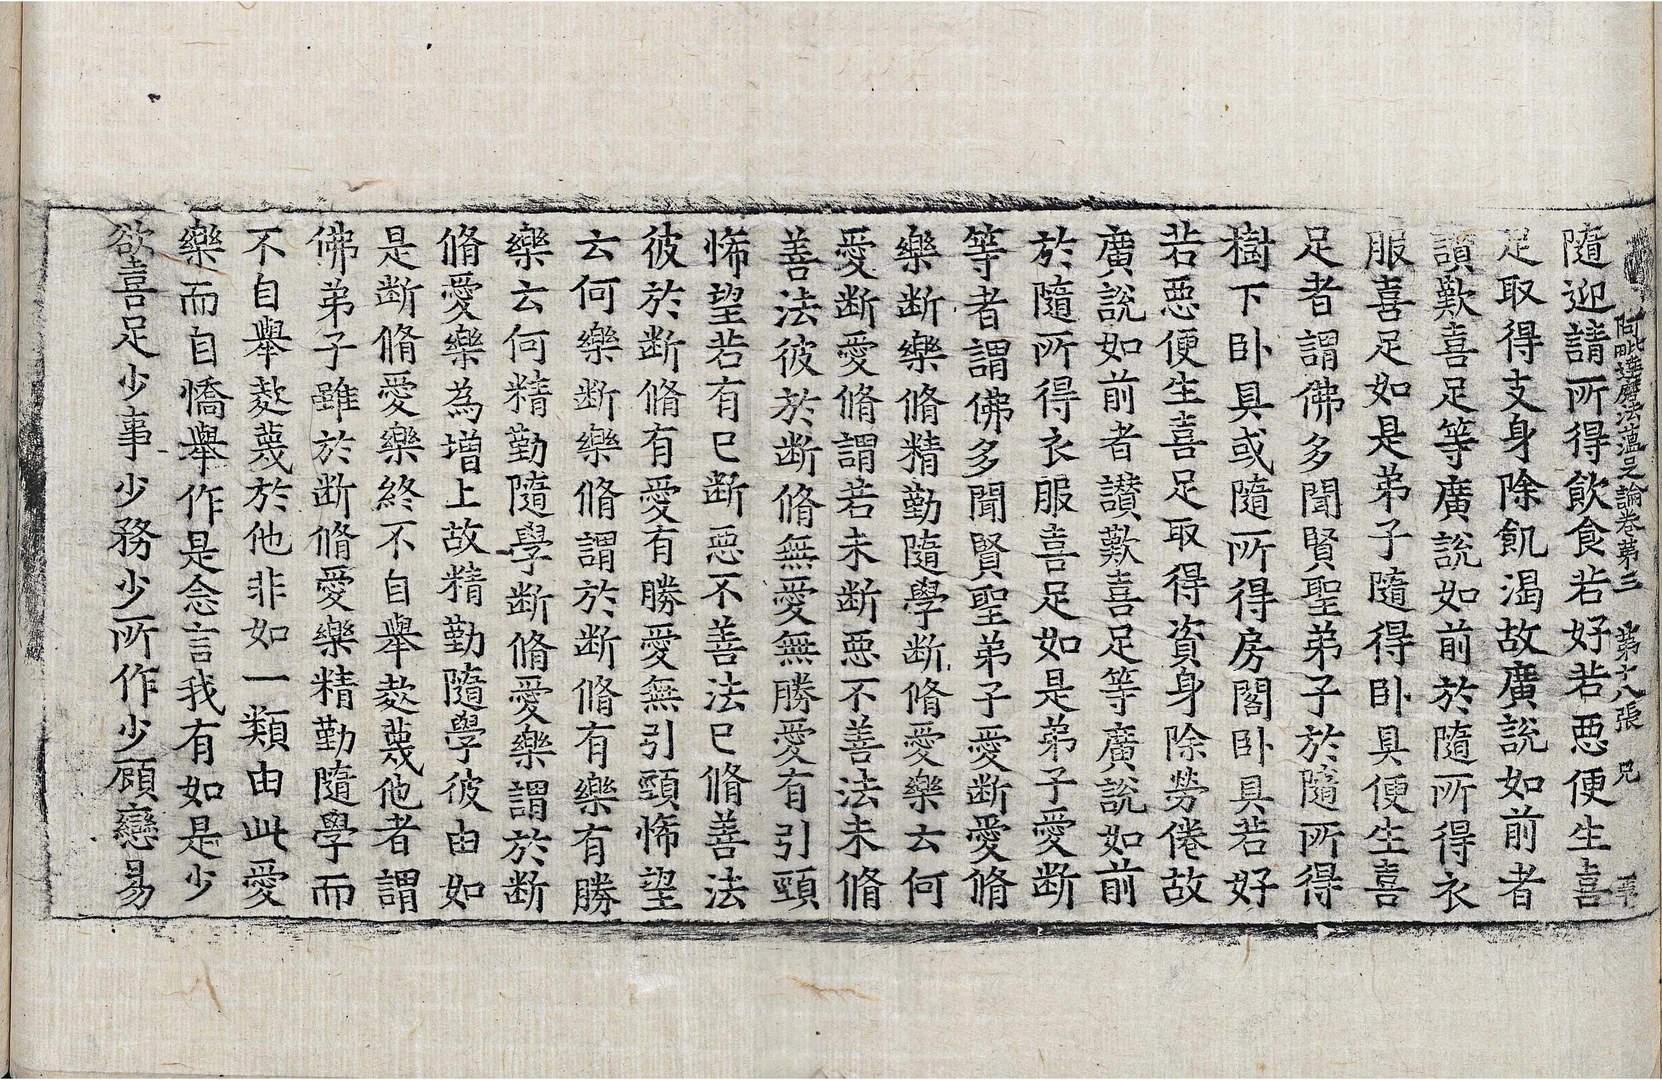 阿毗達磨法蘊足論卷第三 第十八張 兄
隨迎請所得飲食若好若惡便生喜
足取得支身除飢渴故廣說如前者
讚歎喜足等廣說如前於隨所得衣
服喜足如是弟子隨得卧具便生喜
足者謂佛多聞賢聖弟子於隨所得
樹下卧具或隨所得房閣卧具若好
若惡便生喜足取得資身除勞倦故
廣說如前者讚歎喜足等廣說如前
於隨所得衣服喜足如是弟子愛斷
等者謂佛多聞賢聖弟子愛斷愛脩
樂斷樂脩精勤隨學斷脩愛樂云何
愛斷愛脩謂若未斷惡不善法未脩
善法彼於斷脩無愛無勝愛有引頸
悕望若有已斷惡不善法已脩善法
彼於斷脩有愛有勝愛無引頸悕望
云何樂斷樂脩謂於斷脩有樂有勝
樂云何精勤隨學斷脩愛樂謂於斷
脩愛樂為增上故精勤隨學彼由如
是斷脩愛樂終不自舉懱蔑他者謂
佛弟子雖於斷脩愛樂精勤隨學而
不自舉蔑於他非如一類由此愛
樂而自憍舉作是念言我有如是少
欲喜足少事少務少所作少顧戀易